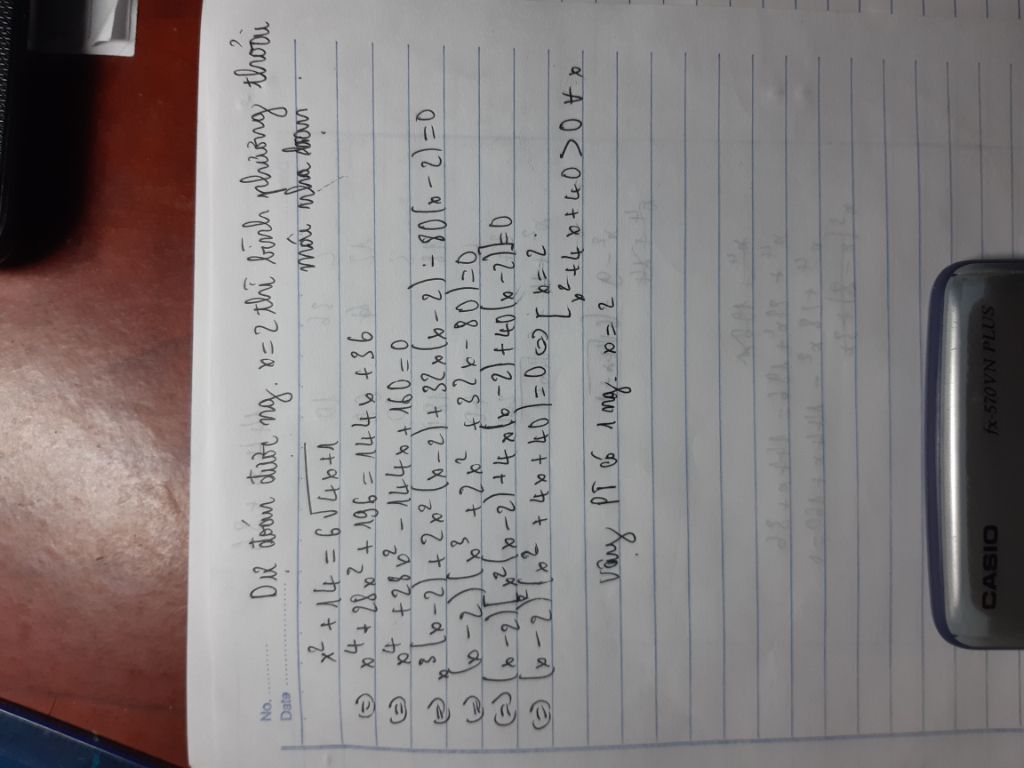 No. ............
Date ............
Dự đoán được ng. x = 2 thì bình phương thôi
mấy nha bạn.
x² + 14 = 6√4x+1
(=) x⁴ + 28x² + 196 = 144x + 36
(=) x⁴ + 28x² - 144x + 160 = 0
(=) x³(x-2) + 2x²(x-2) + 32x(x-2) - 80(x-2) = 0
(=) (x-2)(x³ + 2x² + 32x - 80) = 0
(=) (x-2)[x²(x-2) + 4x(x-2) + 40(x-2)] = 0
(=) (x-2)²(x² + 4x + 40) = 0 (=) [ x = 2.
x² + 4x + 40 > 0 ∀ x
Vậy PT có 1 ng. x = 2
CASIO
fx-570VN PLUS